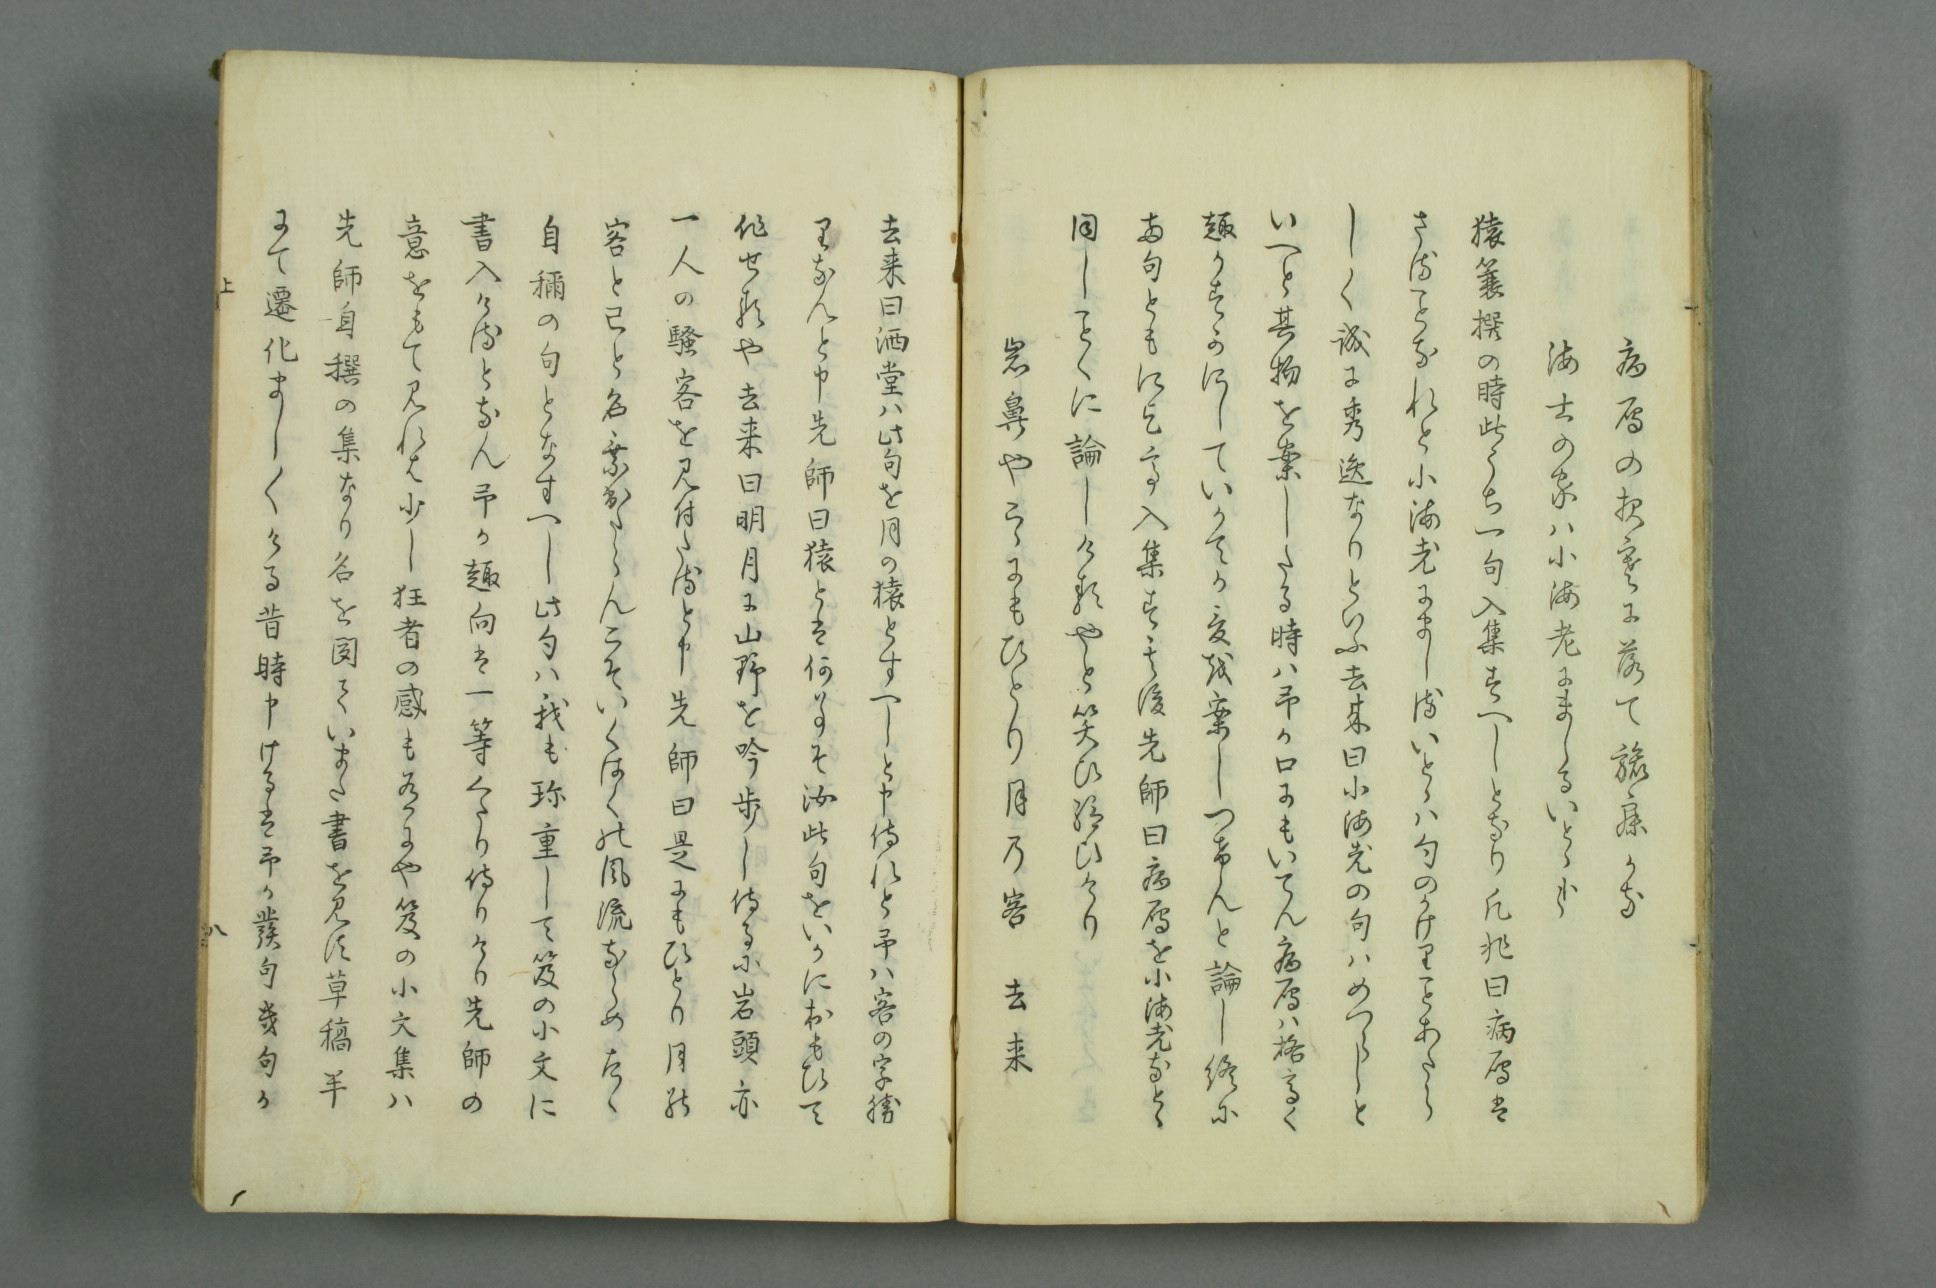 病鴈の夜寒に落て旅寐かな
海士の家ハ小海老にましるいとゝ哉
猿簑撰の時此うち一句入集すへしとなり凡兆曰病鴈は
さることなれと小海老にましるいとゝハ句のかけりことあたら
しく誠に秀逸なりといふ去来曰小海老の句ハめつらしと
いへと其物を案したる時ハ予か口にもいてん病鴈ハ格高く
趣かすかにしていかてか爰を案しつけんと論し終に
両句ともに乞ふて入集す其後先師曰病鴈を小海老なとゝ
同しことくに論しけりやと笑ひ給ひけり
岩鼻やこゝにもひとり月乃客　去来
去来曰洒堂ハ此句を月の猿とすへしと申侍れと予ハ客の字勝
りなんと申先師曰猿とは何事そ汝此句をいかにおもひて
作せるや去来曰明月に山野を吟歩し侍るに岩頭亦
一人の騒客を見付たると申先師曰是にもひとり月の
客と己と名乗出たらんこそいくはくの風流ならめたゝ
自稱の句となすへし此句ハ我も珍重して笈の小文に
書入けるとなん予か趣向は一等くたり侍りけり先師の
意をもて見れは少し狂者の感も有にや笈の小文集ハ
先師自撰の集なり名を聞ていまた書を見す草稿半
にて遷化ましましける昔時申けるは予か發句幾句か
上
八